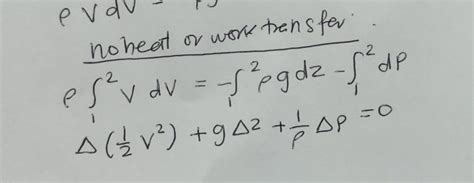 ρ V dV =
no heat or work transfer.
ρ ∫₁² V dV = -∫₁² ρg dz - ∫₁² dP
Δ(½ V²) + gΔz + 1/ρ ΔP = 0